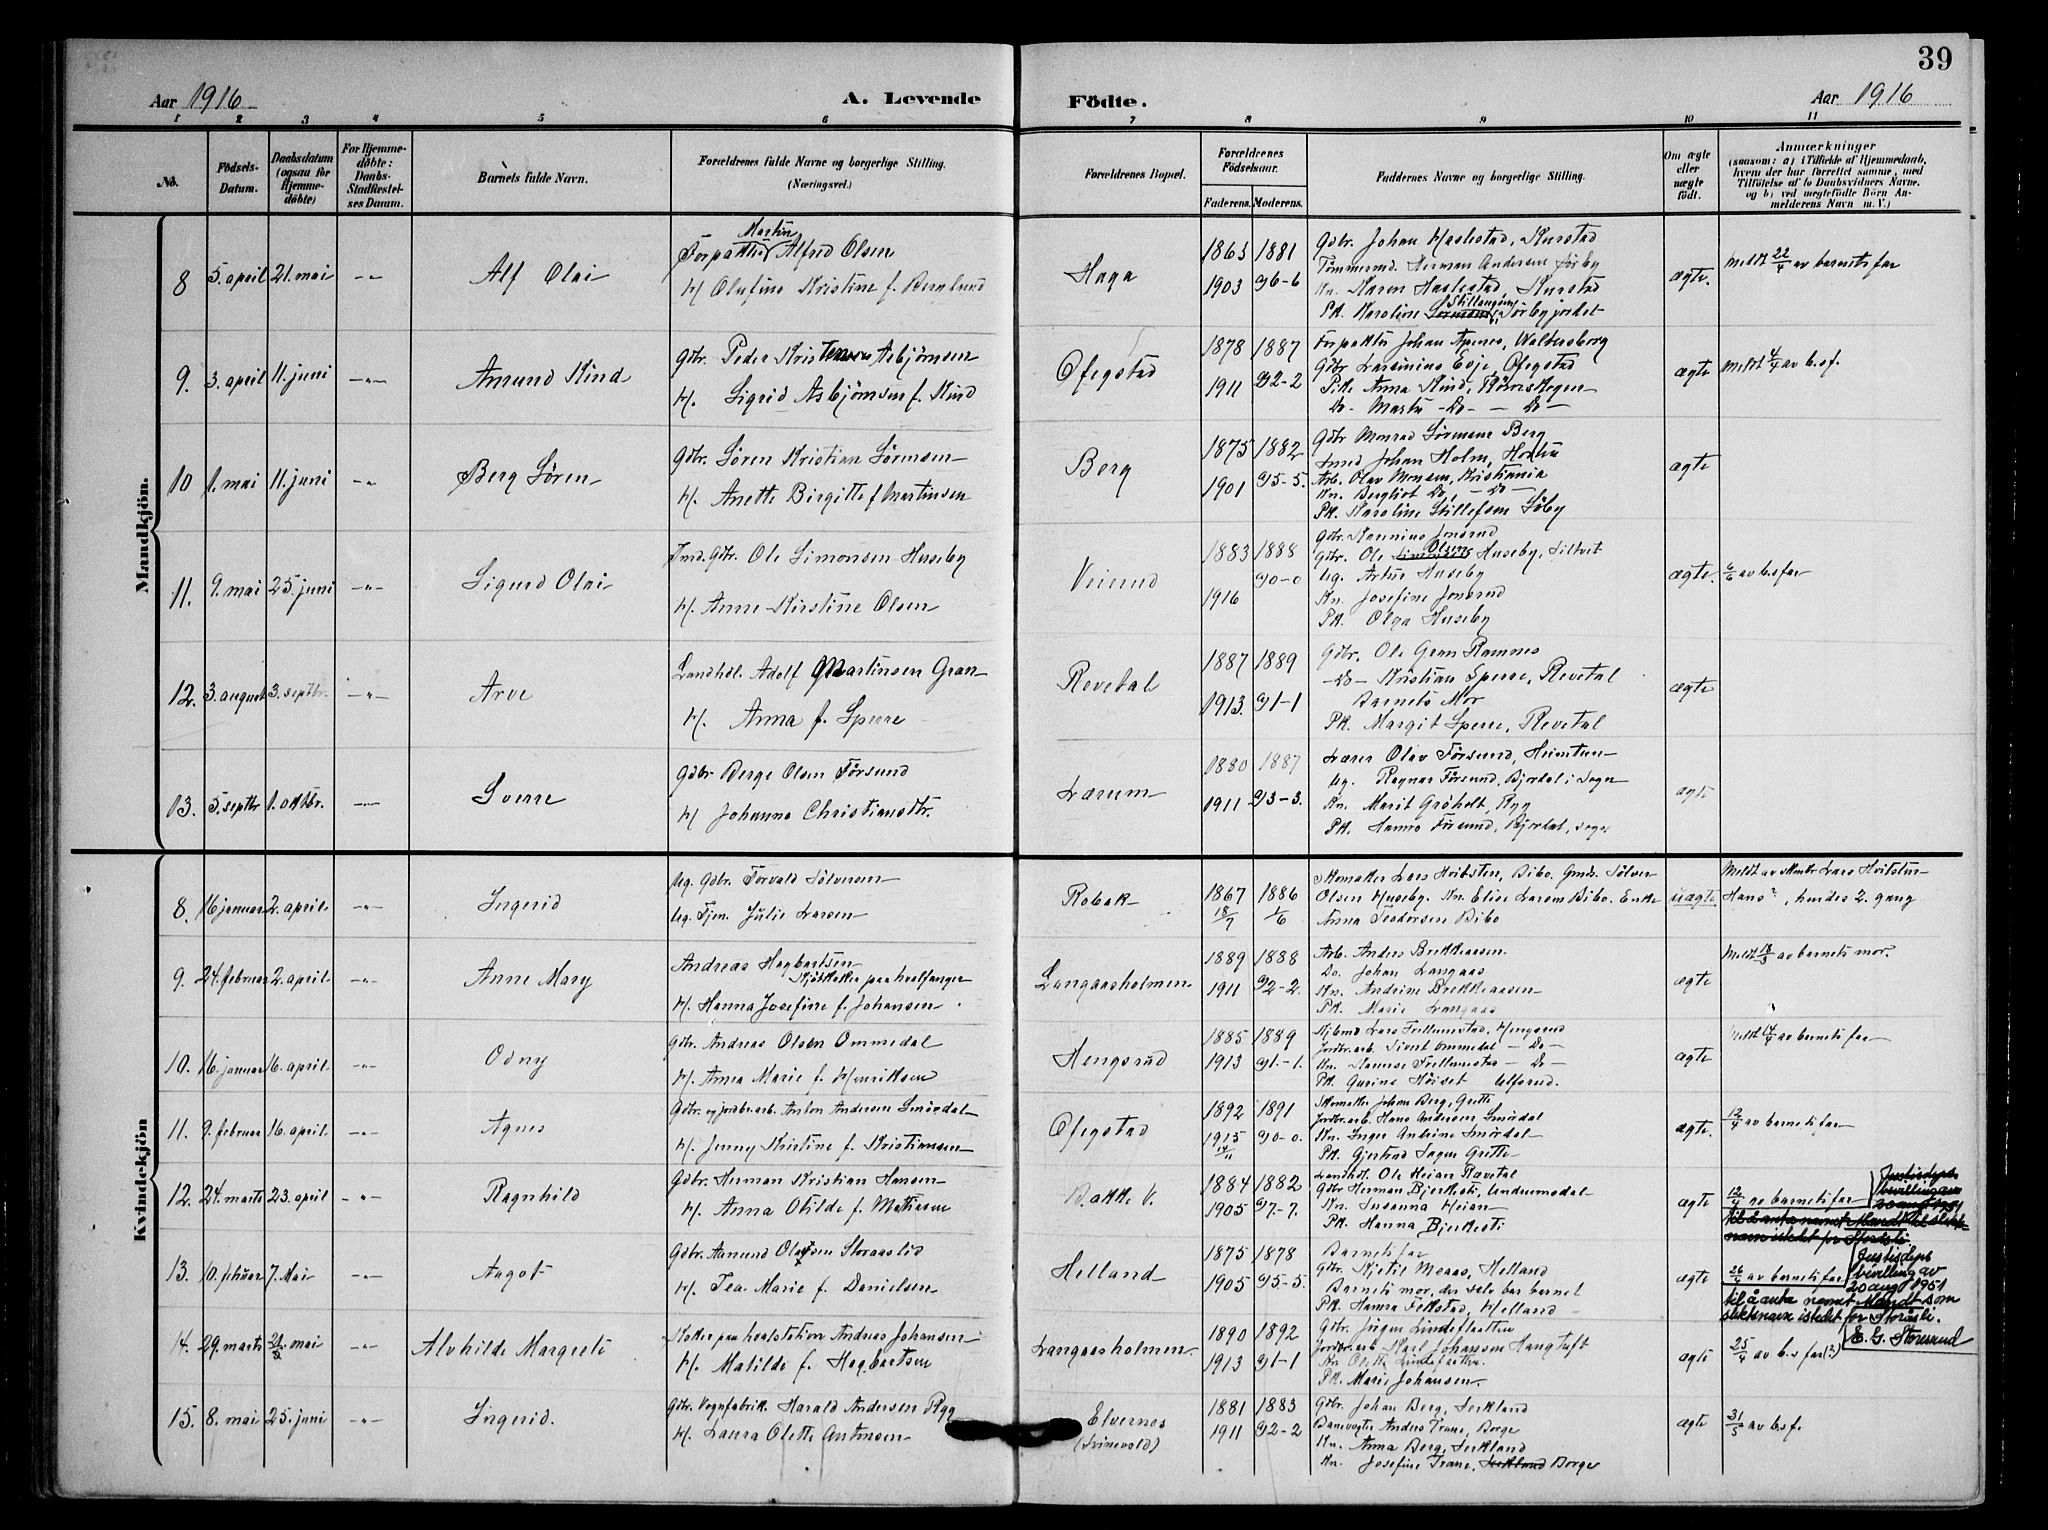 39
Aar 1916
A. Levende
Födte.
Aar 1916
1 2 3 4 5 6 7 8 9 10 11
No.
Födsels-
Datum.
Daabsdatum
(ogsaa för
Hjemme-
döbte)
For Hjemme-
döbte:
Daabs-
Stadfæstel-
ses Datum.
Barnets fulde Navn.
Forældrenes fulde Navne og borgerlige Stilling.
(Næringsvei.)
Forældrenes Bopæl.
Forældrenes
Födselsaar.
Faderens. Moderens.
Faddernes Navne og borgerlige Stilling.
Om ægte
eller
uægte
födt.
Anmærkninger
(saasom: a) i Tilfælde af Hjemmedaab,
hvem der har forrettet samme, med
Tilföielse af to Daabsvidners Navne,
og b) ved uægtefödte Börn An-
melderens Navn m. V.)
Mandkjön.
8 5. april 21. mai -"- Alf Olai
Martin
Forpakter Alfred Olsen
H. Olufine Kristine f. Berglund
Haga
1863 1881
1903 96-6
Gdbr. Johan Haslestad, Kurstad
Tømmermd. Herman Andersen Sørby
Kn. Karen Haslestad, Kurstad
Pk. Karoline Sørbyjordet
ægte.
Meldt 22/4 av barnets far
9. 3. april 11. juni -"- Amund Kind
Gdbr. Peder Kristensen Asbjørnsen
H. Sigrid Asbjørnsen f. Kind
Ofigstad
1878 1887
1911 92-2
Forpakter Johan Apenes, Waltersborg
Gdbr. Laurinius Evje, Ofigstad
Pik. Anna Kind,
Do- Marta -Do- - Do-
ægte
Meldt 4/4 av b.s.f.
10 1. mai 11. juni -"- Berg Søren
Gdbr. Søren Kristian Sørensen
H. Anette Birgitte f. Martinsen
Berg
1875 1882
1901 95-5.
Gdbr Monrad Sørensen Berg
Smed Johan Holm, Horten
Arb. Olav Monsen, Kristiania
Kn. Bergliot Do, - Do -
Pk. Karoline Stillefsen Søby
ægte
11. 9. mai 25. juni -"- Sigurd Olai
Smd. Gdbr. Ole Simonsen Huseby
H. Anne Kirstine Olsen
Veierud
1883 1888
90-0
1916
Gdbr. Jonsrud
Gdbr. Ole Olsen Huseby,
Ug. Artur Huseby
Kn. Josefine Jonsrud
Pk. Olga Huseby
ægte. 6/6 av b.s far
12. 3. august 3. septbr. -"- Arve
Landhdl. Adolf Martinsen Gran
H. Anna f. Sperre
Revetal
1887 1889
1913. 91-1
Gdbr. Ole Gran Ramnes
-Do- Kristian Sperre, Revetal
Barnets Mor
Pk. Margit Sperre, Revetal
ægte
13. 5. septbr 1. oktbr. -"- Sverre
Gdbr Berge Olsen Førsund
H Johanna Christiansdtr.
Lærum
1880 1887
1911 93-3.
Lærer Olav Førsund, Heimtun
Ug. Ragnar Førsund, Bjordal i Sogn
Kn. Marit Grøholt, Rygg
Pk. Hanna Førsund, Bjordal, Sogn
ægte
Kvindekjön
8. 16 januar 2. april -"- Ingerid
Ug. Gdbr. Torvald Sølversen
Ug. Tjen. Julie Larsen
Robak
1867 1886
18/7 1/6
Skomaker Lars Hvitsten, Bibo. Gmd. Sølver
Olsen Huseby. Kn. Elise Larsen Bibo. Enke
Anna Teodorsen Bibo
uægte.
Meldt av Skmkr Lars Hvitsten
Hans 2, hendes 2. gang
9. 24. februar 2. april -"- Anne Mary
Andreas Hagbartsen
Kjøkkoker paa hvalfanger
H. Hanna Josefine f. Johansen
Langaasholmen
1889 1888
1911 92-2.
Arb. Anders Brekkeaasen
Do. Johan Langaas
Kn. Andrine Brekkeaasen
Pk. Marie Langaas
ægte
Meldt 18/3 av barnets mor.
10. 16. januar 16. april -"- Odny
Gdbr. Andreas Olsen Ommedal
H. Anna Marie f. Henriksen
Hengsrud
1885 1889
1913 91.-1.
Lars Trellumstad, Hengsrud
Jordbr.arb. Sivert Ommedal - Do-
Kn. Trellumstad - Do-
Pk. Gurine Høiset Ulfsrud.
ægte
Meldt 14/4 av barnets far
11. 9. februar 16. april -"- Agnes
Gdbr. og jordbr.arb. Anton Andersen Smørdal
H. Jenny Kristine f. Kristiansen
Ofigstad
1892 1891
1915 90-0.
14/11
Skomaker Johan Berg, Grette
Jordbr.arb Hans Andersen Smørdal
Kn. Inger Andrine Smørdal
Pk. Gjertrud Inger Grette
ægte. 12/4 av barnets far
12. 24. marts 23. april -"- Ragnhild
Gdbr. Herman Kristian Hansen
H. Anna Otilde f. Matisen
Bakk. V.
1884 1882
1905 97.-7.
Landhdl. Ole Heian Rævetal
Gdbr Herman Bjerkesti, Undrumsdal
Kn. Susanna Heian
Pk. Hanna Bjerkesti
ægte 12/4 av barnets far
Justisdeps
bevilling av
20 aug 1951
til å anta navnet Mandt til slekt-
navn istedet for Storåsli
13. 10. februar 7. Mai -"- Aagot
Gdbr. Aanund Olavsen Storaaslid
H. Tea Marie f. Danielsen
Helland
1875 1878
1905 95-5.
Barnets far
Gdbr. Kjetil Meaas, Helland
Barnets mor, der selv bar barnet
Pk. Hanna Fekstad, Helland
ægte 26/4 av barnets far
Justisdeps
bevilling av
20 aug 1951
til å anta navnet Mandt som
slektsnavn istedet for Storåsli.
E. G. Storesund
14. 29. marts 21. mai -"- Alvhilde Margrete
Kokker paa hvalstation Andreas Johansen
H. Matilde f. Hagbartsen
Langaasholmen
1890 1892
1913 91-1
Gdbr. Jørgen Lindeflaatten
Jordbr.arb Karl Johansen Haugtuft
Kn Olette Lindeflaatten.
Pk. Marie Johansen.
ægte 25/4 av b.s far (?)
15. 8. mai 25. juni -"- Ingerid.
Gdbr. Vognfabrik. Harald Andersen Rygg
H. Laura Olette Antonsen
Elvernes
(Svinevold)
1881 1883
1911 92-2
Gdbr. Johan Berg, Serkland
Banevogter Anders Trane, Borge
Kn. Anna Berg, Serkland
Kn. Josefine Trane, Serkland Borge
ægte 31/5 av b.s f.